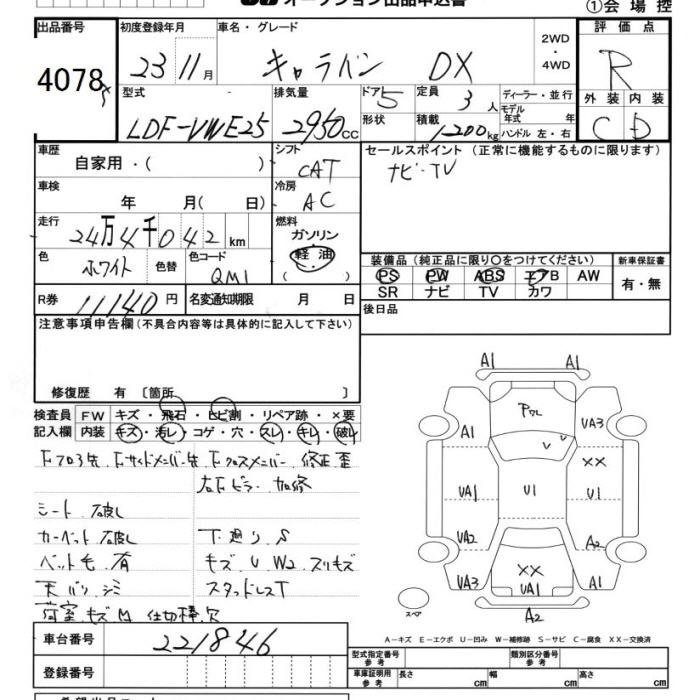 オークション出品申込書
①会場控
出品番号 初度登録年月 車名・グレード 2WD・4WD 評価点
4078 23 11月 キャラバン DX R
型式 排気量 ドア 定員 ディーラー・並行 外装 内装
LDF-VWE25 2950cc 5 3人 モデル年式 年 C D
形状 積載 1200kg ハンドル 左・右
車歴 シフト セールスポイント (正常に機能するものに限ります)
自家用・( ) CAT ナビ・TV
車検 冷房
年 月( 日) AC
走行 燃料
24万4千042km ガソリン
色 色替 色コード 軽油 装備品(純正品に限り○をつけてください) 新車保証書
ホワイト QM1 ( ) PS PW ABS エアB AW 有・無
R券 11140円 名変通知期限 月 日 SR ナビ TV カワ
注意事項申告欄(不具合内容等は具体的に記入して下さい) 後日品
修復歴 有 〔箇所 〕
検査員 FW キズ・飛石・ヒビ割・リペア跡・×要
記入欄 内装 キズ・汚レ・コゲ・穴・スレ・キレ・破レ
F.フロア3先 F.サイドメンバー先 F.クロスメンバー 修正 歪
右Fピラー 加修
シート 破レ
カーペット 破レ 下廻り S
ペット毛 有 キズ U W2 スリキズ
天バリ シミ スタッドレスT
荷室 キズ M 仕切棒 欠
A1 A1
A1 UA3
XX
UA1 U1 U1
UA2 A2
XX
UA3 UA1 A1
スペア A2
A-キズ E-エクボ U-凹み W-補修跡 S-サビ C-腐食 XX-交換済
車台番号 221846
型式指定番号 参考 類別区分番号 参考
登録番号 車庫証明用 参考 長さ cm 幅 cm 高さ cm